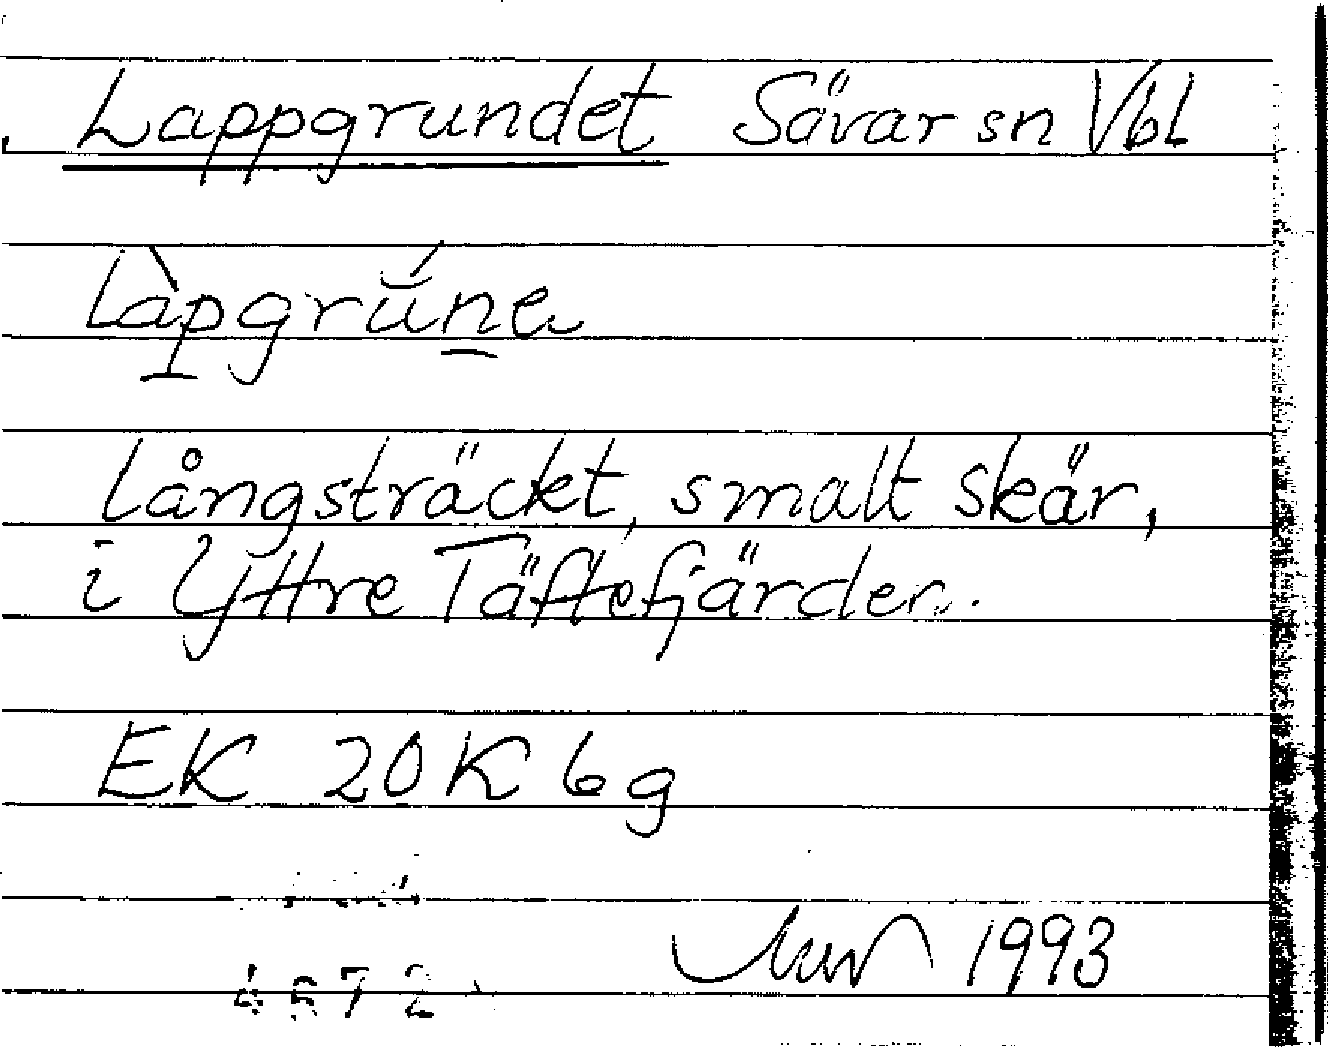 Lappgrundet Sävar sn Vbl
Làpgrŭ́na
Långsträckt, smalt skär,
i Yttre Täftefjärden.
EK 20K 6g
1993
4572